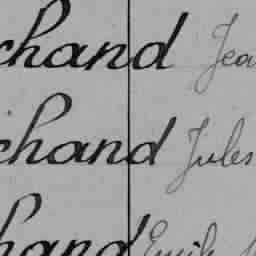 chand Jea
chand Jules
hand Emile